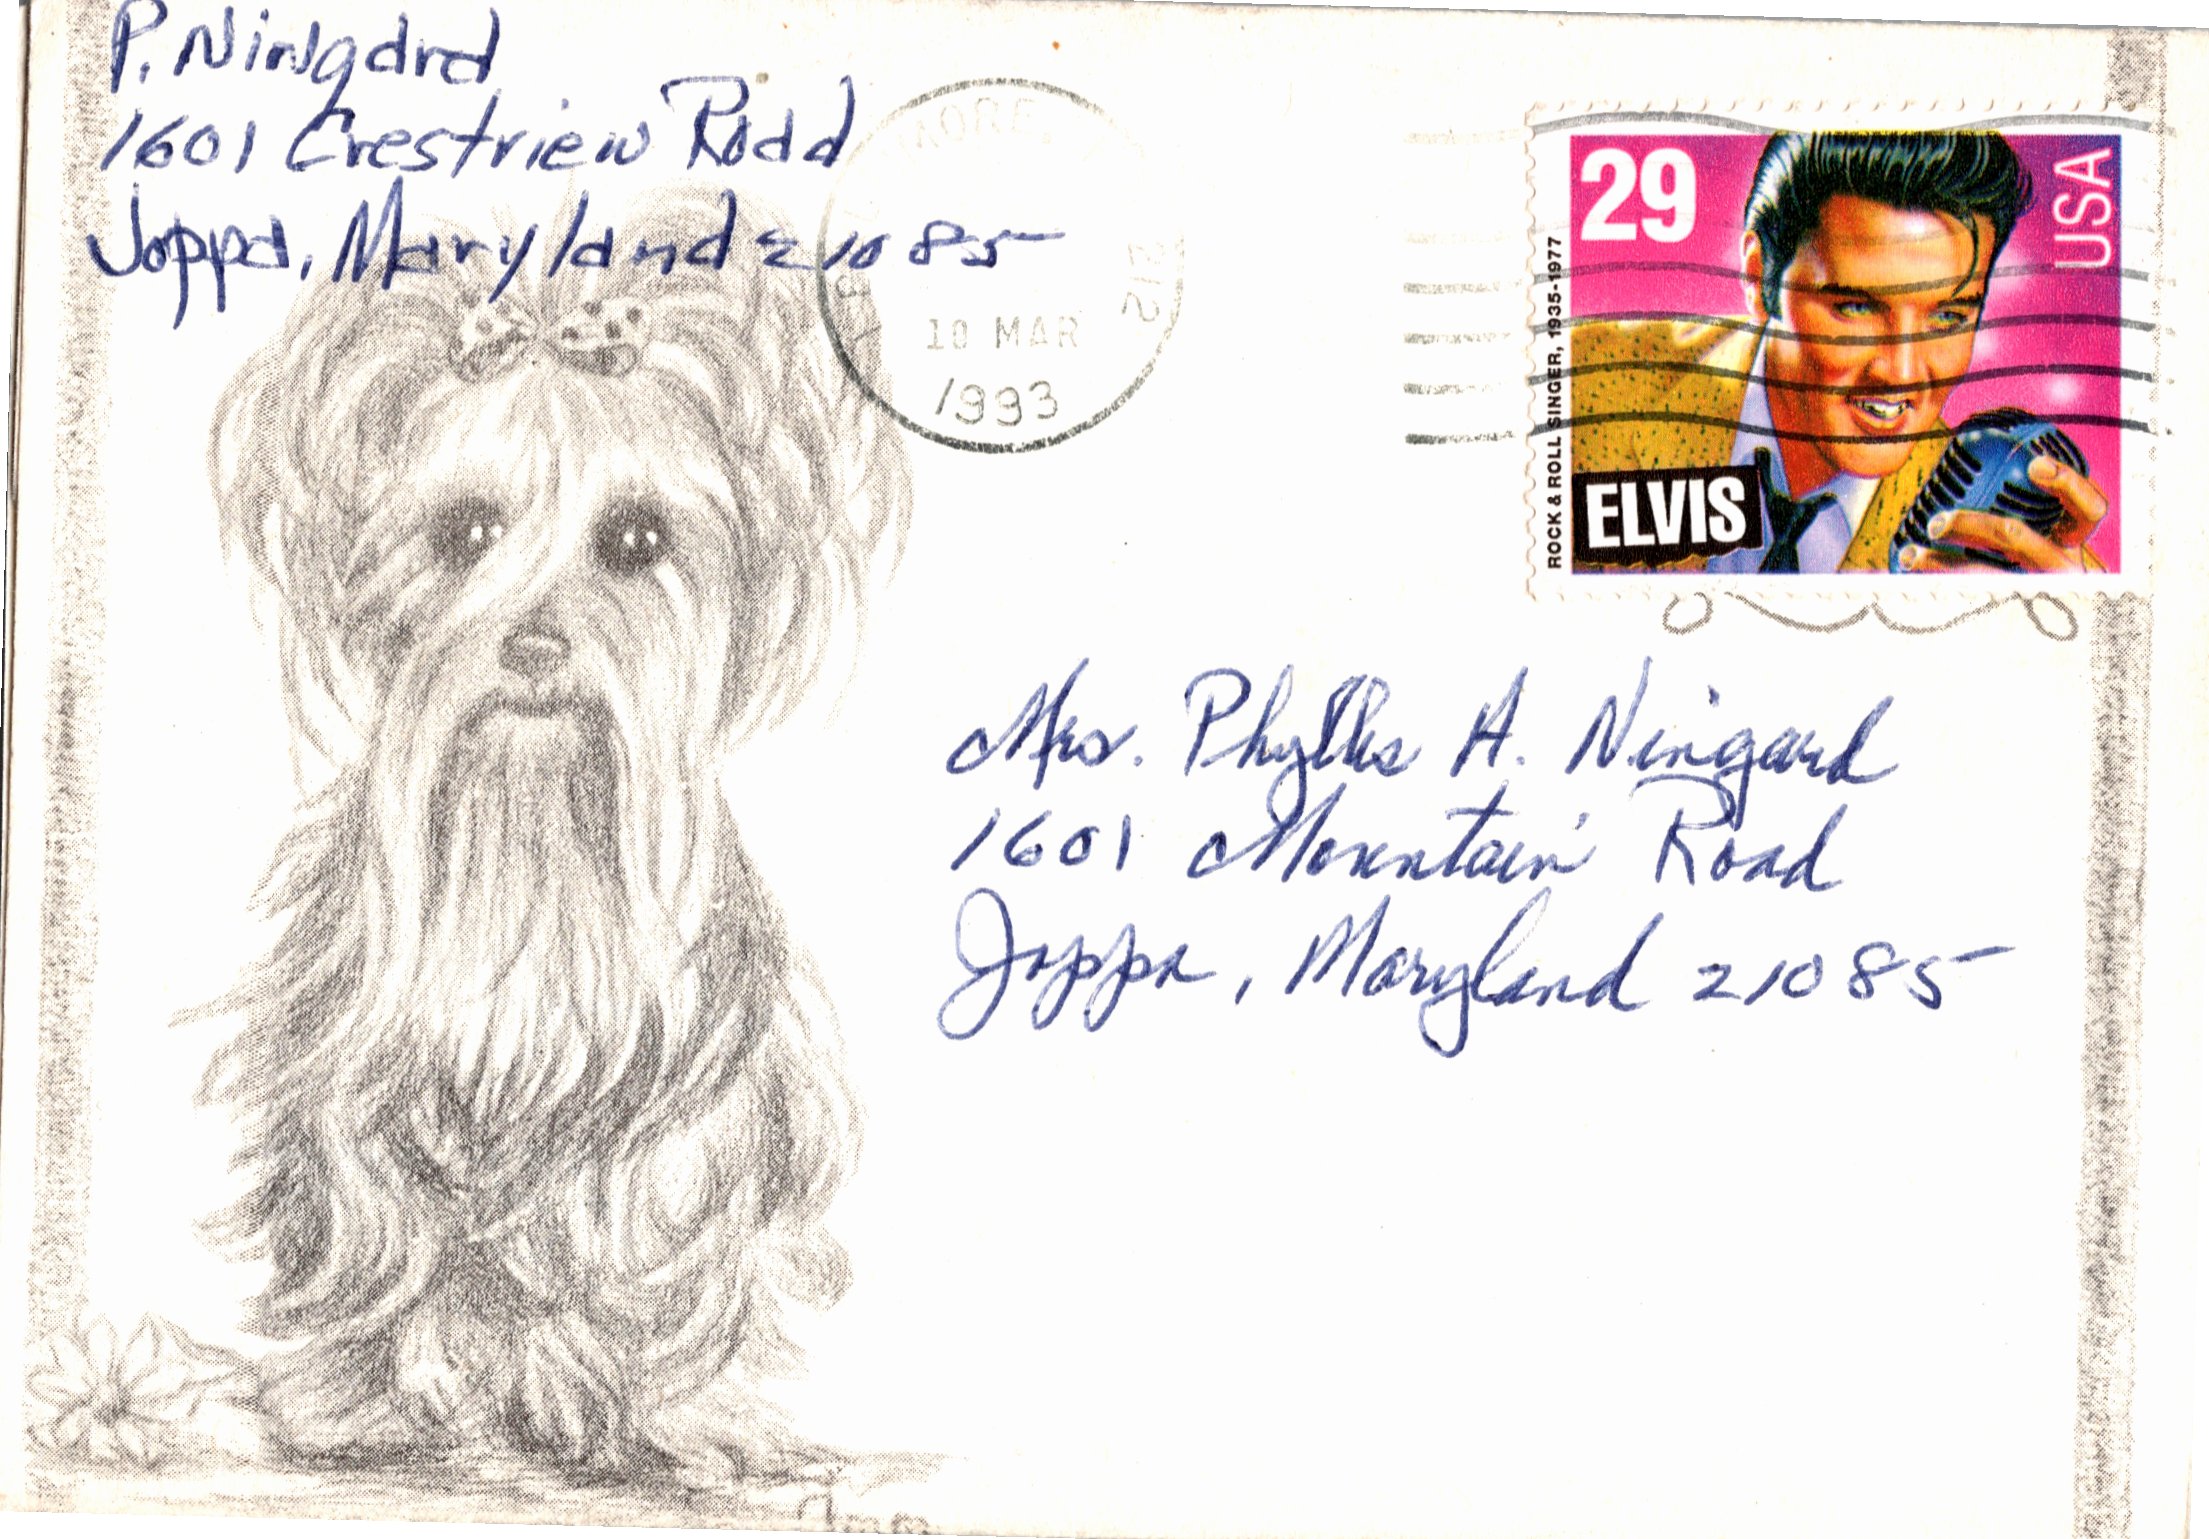 P. Ningard
1601 Crestview Road
Joppa, Maryland 21085
MORE,
212
10 MAR
1993
29
USA
ROCK & ROLL SINGER, 1935-1977
ELVIS
Mrs. Phyllis A. Ningard
1601 Mountain Road
Joppa, Maryland 21085